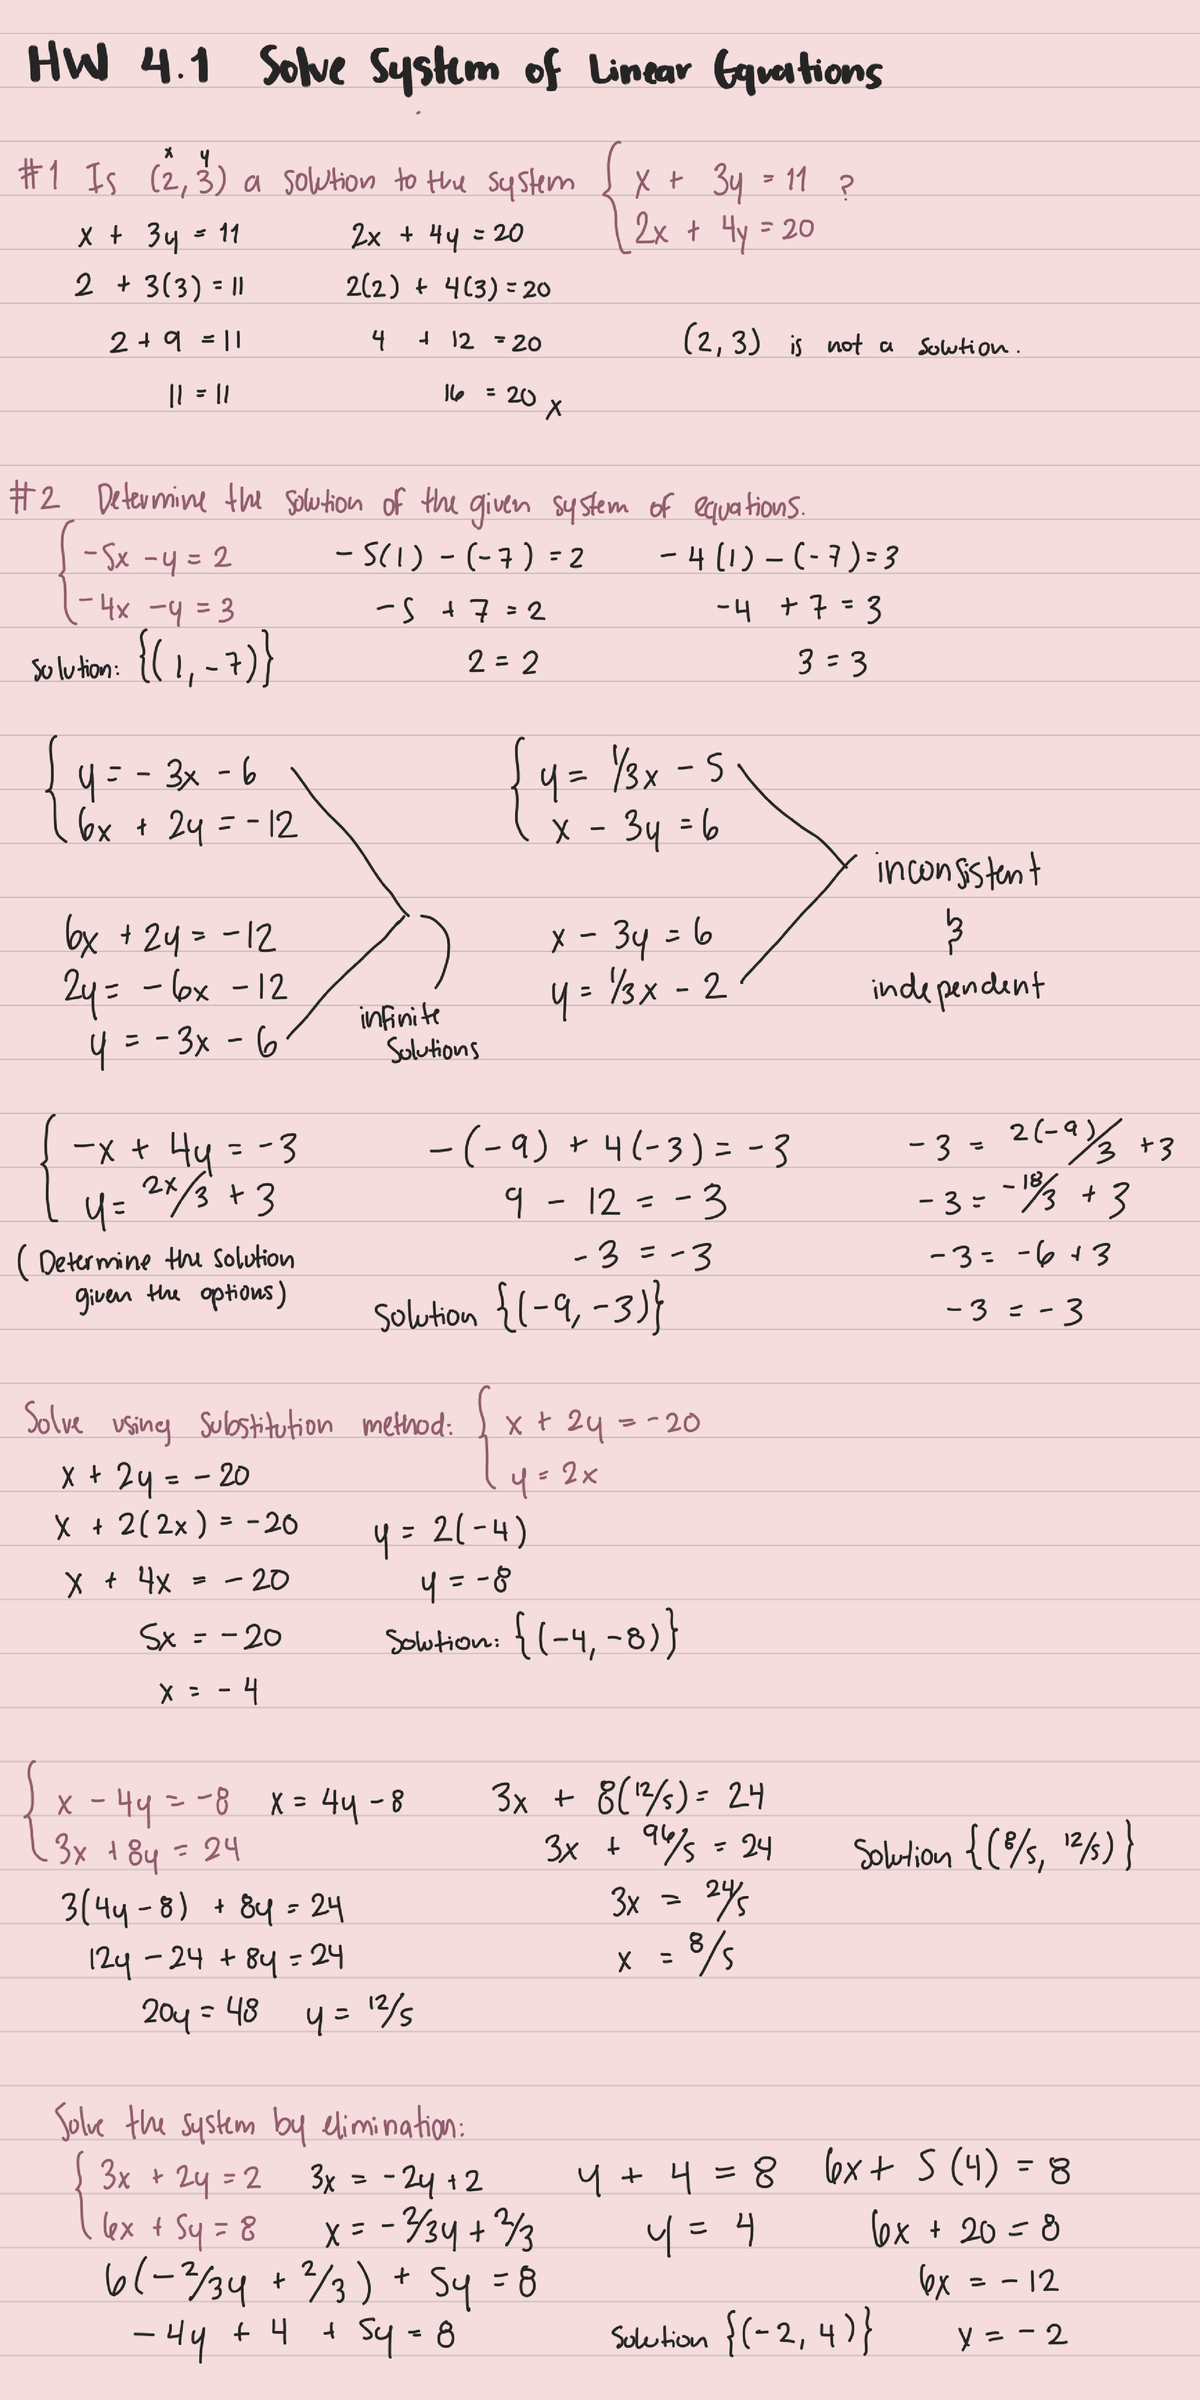 HW 4.1 Solve System of Linear Equations
x y
#1 Is (2, 3) a solution to the system { x + 3y = 11 ?
2x + 4y = 20
x + 3y = 11 2x + 4y = 20
2 + 3(3) = 11 2(2) + 4(3) = 20
2 + 9 = 11 4 + 12 = 20 (2, 3) is not a solution.
11 = 11 16 = 20 x
#2 Determine the solution of the given system of equations.
{ -5x - y = 2 -5(1) - (-7) = 2 -4(1) - (-7) = 3
-4x - y = 3 -5 + 7 = 2 -4 + 7 = 3
Solution: {(1, -7)} 2 = 2 3 = 3
{ y = -3x - 6 { y = 1/3x - 5
6x + 2y = -12 x - 3y = 6
inconsistent
6x + 2y = -12 x - 3y = 6 &
2y = -6x - 12 y = 1/3x - 2 independent
y = -3x - 6 infinite
solutions
{ -x + 4y = -3 -(-9) + 4(-3) = -3 -3 = 2(-9)/3 + 3
y = 2x/3 + 3 9 - 12 = -3 -3 = -18/3 + 3
(Determine the solution -3 = -3 -3 = -6 + 3
given the options) Solution {(-9, -3)} -3 = -3
Solve using substitution method: { x + 2y = -20
x + 2y = -20 y = 2x
x + 2(2x) = -20 y = 2(-4)
x + 4x = -20 y = -8
5x = -20 Solution: {(-4, -8)}
x = -4
{ x - 4y = -8 x = 4y - 8 3x + 8(12/5) = 24
3x + 8y = 24 3x + 96/5 = 24 Solution {(8/5, 12/5)}
3(4y - 8) + 8y = 24 3x = 24/5
12y - 24 + 8y = 24 x = 8/5
20y = 48 y = 12/5
Solve the system by elimination:
{ 3x + 2y = 2 3x = -2y + 2 y + 4 = 8 6x + 5(4) = 8
6x + 5y = 8 x = -2/3y + 2/3 y = 4 6x + 20 = 8
6(-2/3y + 2/3) + 5y = 8 6x = -12
-4y + 4 + 5y = 8 Solution {(-2, 4)} x = -2